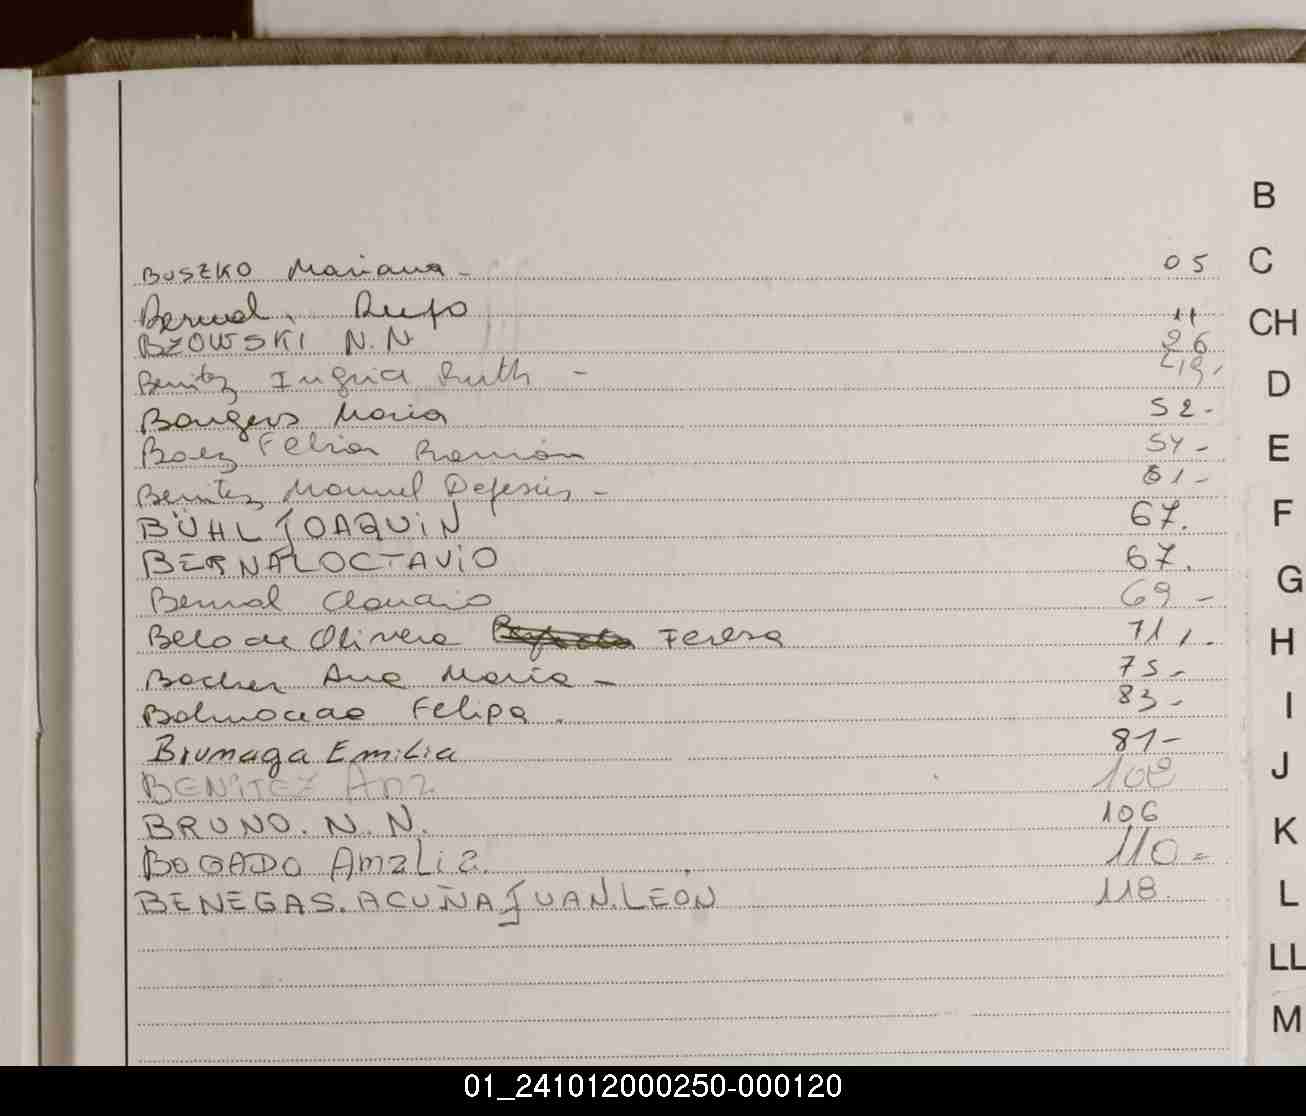 B
BUSZKO Mariana - 05
C
Bernal. Rufo 11
CH
BZOWSKI N.N 26
Benitez Ingrid Ruth - 49.
D
Bongers Maria 52-
Baez Felix Ramón 54-
E
Benitez Manuel Dejesús - 61-
BÜHL JOAQUIN 67.
F
BERNAL OCTAVIO 67.
Bernal Claudio 69-
G
Belo de Olivera Teresa 71,.
H
Bacher Ana Maria - 75-
Felipa. 83-
I
Brumaga Emilia 81-
BENITEZ Ana 108
J
BRUNO. N.N. 106
K
BOGADO Amalia. 110=
BENEGAS. ACUÑA JUAN. LEÓN 118.
L
LL
M
01_241012000250-000120